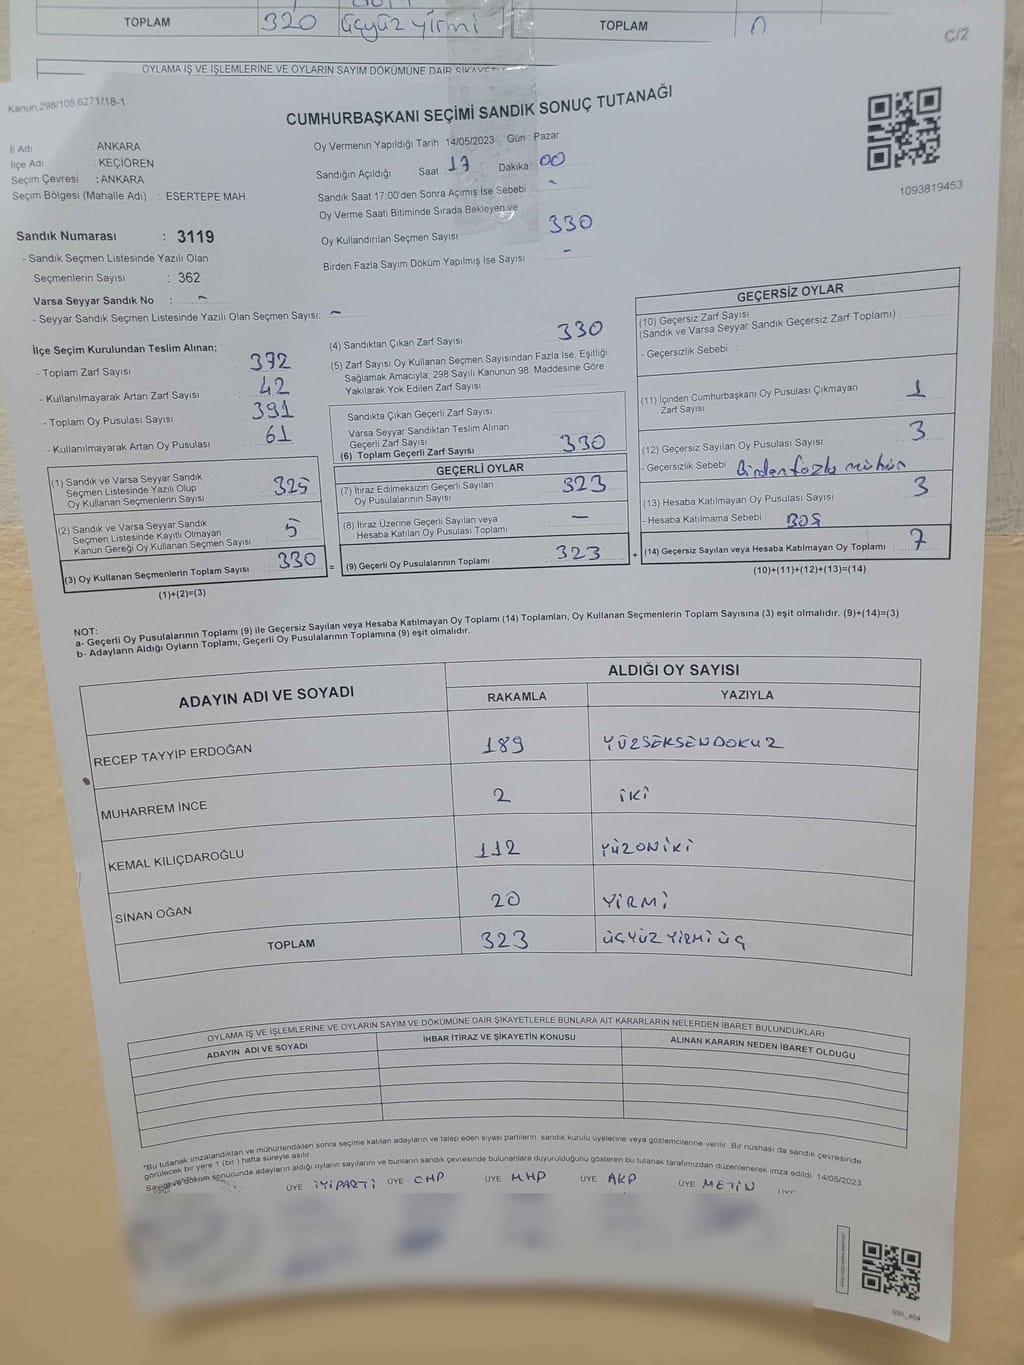 TOPLAM 320 üçyüz yirmi TOPLAM 0
C/2
OYLAMA İŞ VE İŞLEMLERİNE VE OYLARIN SAYIM DÖKÜMÜNE DAİR
Kanun,298/105;6271/18-1
CUMHURBAŞKANI SEÇİMİ SANDIK SONUÇ TUTANAĞI
1093819453
İl Adı : ANKARA
İlçe Adı : KEÇİÖREN
Seçim Çevresi : ANKARA
Seçim Bölgesi (Mahalle Adı) : ESERTEPE MAH
Sandık Numarası : 3119
- Sandık Seçmen Listesinde Yazılı Olan
Seçmenlerin Sayısı : 362
Varsa Seyyar Sandık No : -
- Seyyar Sandık Seçmen Listesinde Yazılı Olan Seçmen Sayısı: -
Oy Vermenin Yapıldığı Tarih : 14/05/2023 Gün : Pazar
Sandığın Açıldığı Saat : 17 Dakika : 00
Sandık Saat 17:00'den Sonra Açımış İse Sebebi : -
Oy Verme Saati Bitiminde Sırada Bekleyen ve
Oy Kullandırılan Seçmen Sayısı 330
Birden Fazla Sayım Döküm Yapılmış İse Sayısı -
İlçe Seçim Kurulundan Teslim Alınan;
- Toplam Zarf Sayısı 372
- Kullanılmayarak Artan Zarf Sayısı 42
- Toplam Oy Pusulası Sayısı 391
- Kullanılmayarak Artan Oy Pusulası 61
(1) Sandık ve Varsa Seyyar Sandık
Seçmen Listesinde Yazılı Olup
Oy Kullanan Seçmenlerin Sayısı 325
(2) Sandık ve Varsa Seyyar Sandık
Seçmen Listesinde Kayıtlı Olmayan
Kanun Gereği Oy Kullanan Seçmen Sayısı 5
(3) Oy Kullanan Seçmenlerin Toplam Sayısı : 330 =
(1)+(2)=(3)
(4) Sandıktan Çıkan Zarf Sayısı 330
(5) Zarf Sayısı Oy Kullanan Seçmen Sayısından Fazla İse, Eşitliği
Sağlamak Amacıyla; 298 Sayılı Kanunun 98. Maddesine Göre
Yakılarak Yok Edilen Zarf Sayısı
Sandıkta Çıkan Geçerli Zarf Sayısı
Varsa Seyyar Sandıktan Teslim Alınan
Geçerli Zarf Sayısı
(6) Toplam Geçerli Zarf Sayısı 330
GEÇERLİ OYLAR
(7) İtiraz Edilmeksizin Geçerli Sayılan
Oy Pusulalarının Sayısı 323
(8) İtiraz Üzerine Geçerli Sayılan veya
Hesaba Katılan Oy Pusulası Toplamı -
(9) Geçerli Oy Pusulalarının Toplamı 323 +
GEÇERSİZ OYLAR
(10) Geçersiz Zarf Sayısı
(Sandık ve Varsa Seyyar Sandık Geçersiz Zarf Toplamı) :
- Geçersizlik Sebebi :
(11) İçinden Cumhurbaşkanı Oy Pusulası Çıkmayan
Zarf Sayısı 1
(12) Geçersiz Sayılan Oy Pusulası Sayısı 3
- Geçersizlik Sebebi Birden fazla mühür
(13) Hesaba Katılmayan Oy Pusulası Sayısı 3
- Hesaba Katılmama Sebebi : BOŞ
(14) Geçersiz Sayılan veya Hesaba Katılmayan Oy Toplamı : 7
(10)+(11)+(12)+(13)=(14)
NOT:
a- Geçerli Oy Pusulalarının Toplamı (9) ile Geçersiz Sayılan veya Hesaba Katılmayan Oy Toplamı (14) Toplamları, Oy Kullanan Seçmenlerin Toplam Sayısına (3) eşit olmalıdır. (9)+(14)=(3)
b- Adayların Aldığı Oyların Toplamı, Geçerli Oy Pusulalarının Toplamına (9) eşit olmalıdır.
ADAYIN ADI VE SOYADI ALDIĞI OY SAYISI
RAKAMLA YAZIYLA
RECEP TAYYİP ERDOĞAN 189 YÜZSEKSENDOKUZ
MUHARREM İNCE 2 İKİ
KEMAL KILIÇDAROĞLU 112 YÜZONİKİ
SİNAN OĞAN 20 YİRMİ
TOPLAM 323 ÜÇYÜZ YİRMİ ÜÇ
OYLAMA İŞ VE İŞLEMLERİNE VE OYLARIN SAYIM VE DÖKÜMÜNE DAİR ŞİKAYETLERLE BUNLARA AİT KARARLARIN NELERDEN İBARET BULUNDUKLARI
ADAYIN ADI VE SOYADI İHBAR İTİRAZ VE ŞİKAYETİN KONUSU ALINAN KARARIN NEDEN İBARET OLDUĞU
*Bu tutanak imzalandıktan ve mühürlendikten sonra seçime katılan adayların ve talep eden siyasi partilerin sandık kurulu üyelerine veya gözlemcilerine verilir. Bir nüshası da sandık çevresinde
görülecek bir yere 1 (bir) hafta süreyle asılır.
Sayım ve döküm sonucunda adayların aldığı oyların sayılarını ve bunların sandık çevresinde bulunanlara duyurulduğunu gösteren bu tutanak tarafımızdan düzenlenerek imza edildi. 14/05/2023
ÜYE İYİPARTİ ÜYE CHP ÜYE MHP ÜYE AKP ÜYE METİN